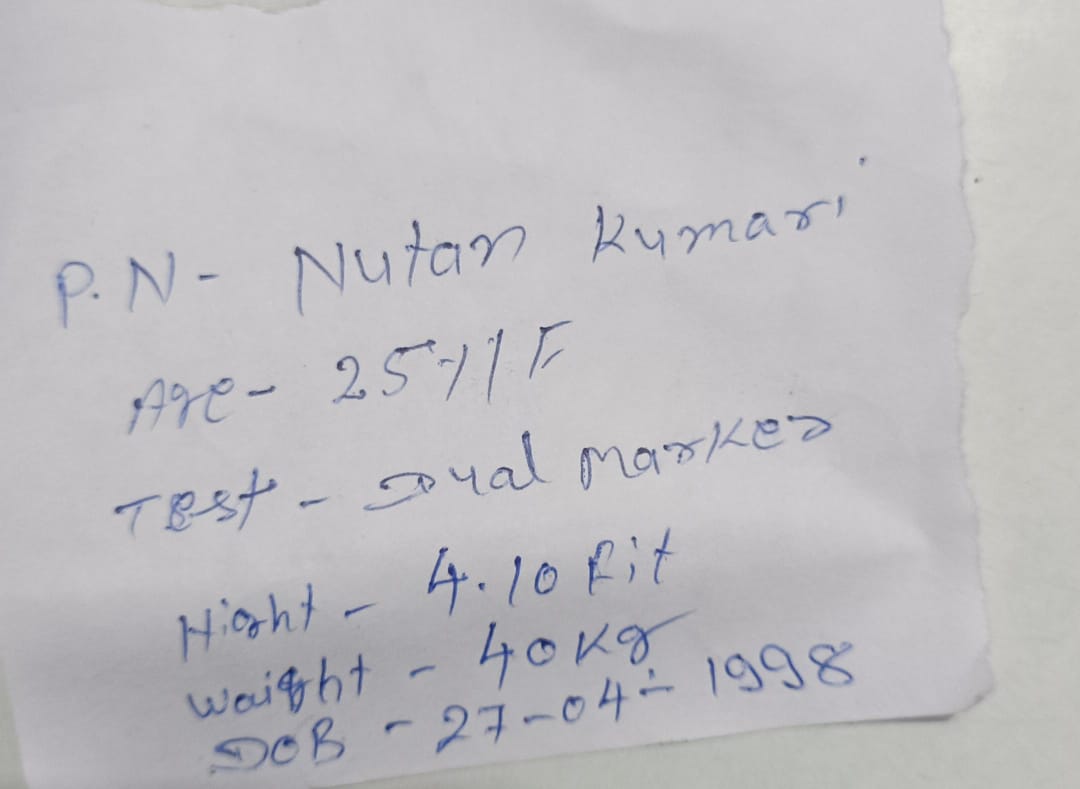 P.N- Nutan Kumari
Age- 25Y/F
TEst - Dual Marker
Hight - 4.10 Fit
Waight - 40 Kg
DOB - 27-04-1998